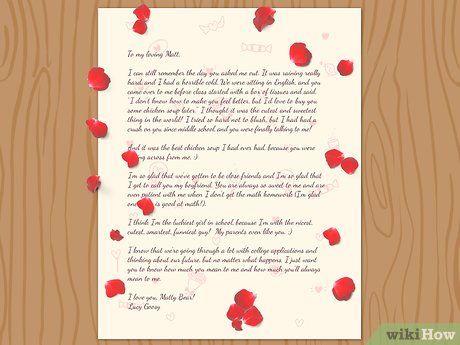 To my loving Matt,
I can still remember the day you asked me out. It was raining really
hard, and I had a horrible cold. We were sitting in English, and you
came over to me before class started with a box of tissues and said,
"I don't know how to make you feel better, but I'd love to buy you
some chicken soup later." I thought it was the cutest and sweetest
thing in the world! I tried so hard not to blush, but I had had a
crush on you since middle school, and you were finally talking to me!
And it was the best chicken soup I had ever had, because you were
across from me. :)
I'm so glad that we've gotten to be close friends and I'm so glad that
I get to call you my boyfriend. You are always so sweet to me and are
even patient with me when I don't get the math homework (I'm glad
one is good at math!).
I think I'm the luckiest girl in school, because I'm with the nicest,
cutest, smartest, funniest guy! My parents even like you. :)
I know that we're going through a lot with college applications and
thinking about our future, but no matter what happens, I just want
you to know how much you mean to me and how much you'll always
mean to me.
I love you, Matty Bear!
Lucy Goosy
wikiHow